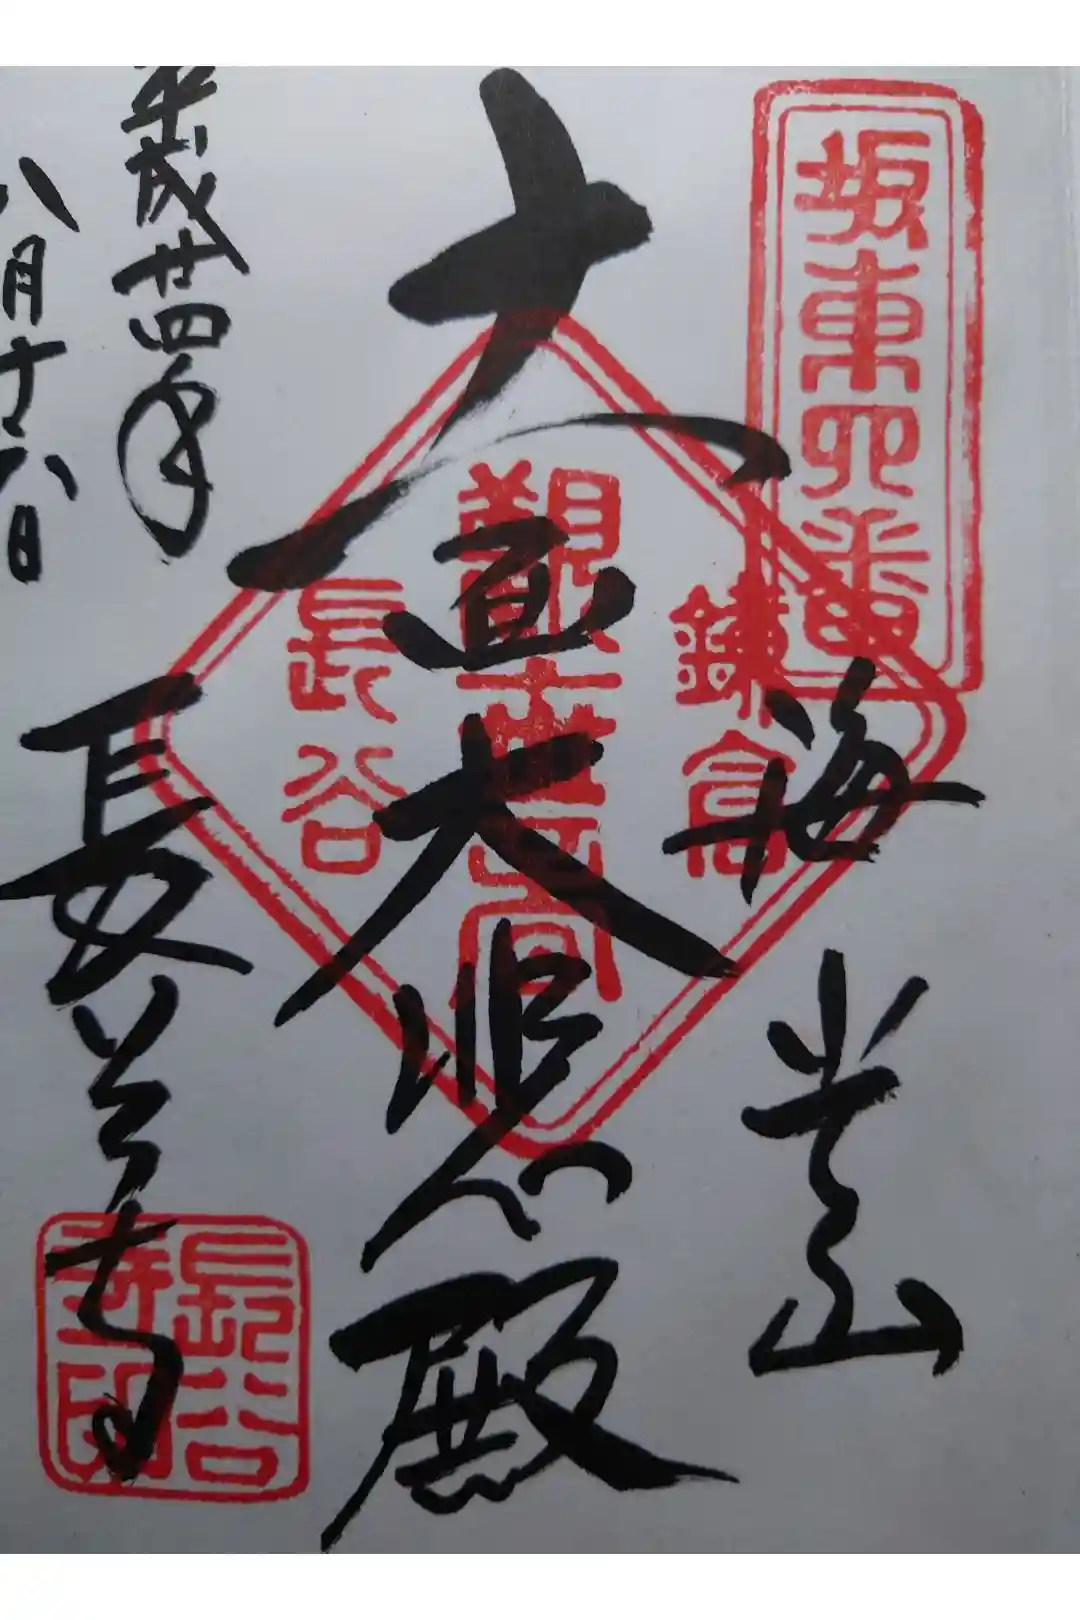 坂東四番
海光山
十一面大悲殿
平成廿四年
八月十八日
長谷寺
鎌倉
觀世音
長谷
長谷
寺印